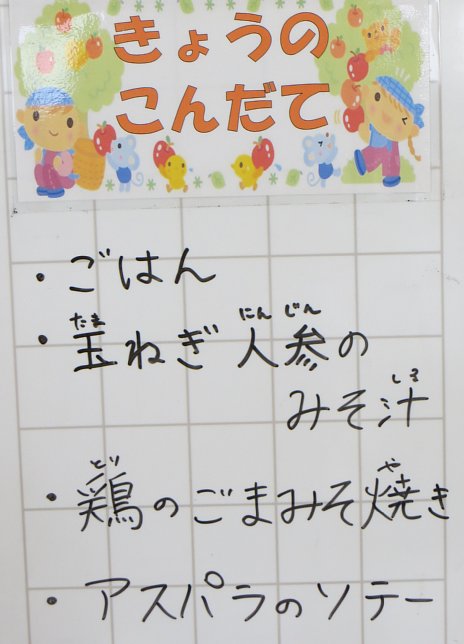 きょうの
こんだて
・ごはん
たま にん じん
・玉ねぎ人参の
しる
みそ汁
とり や
・鶏のごまみそ焼き
・アスパラのソテー